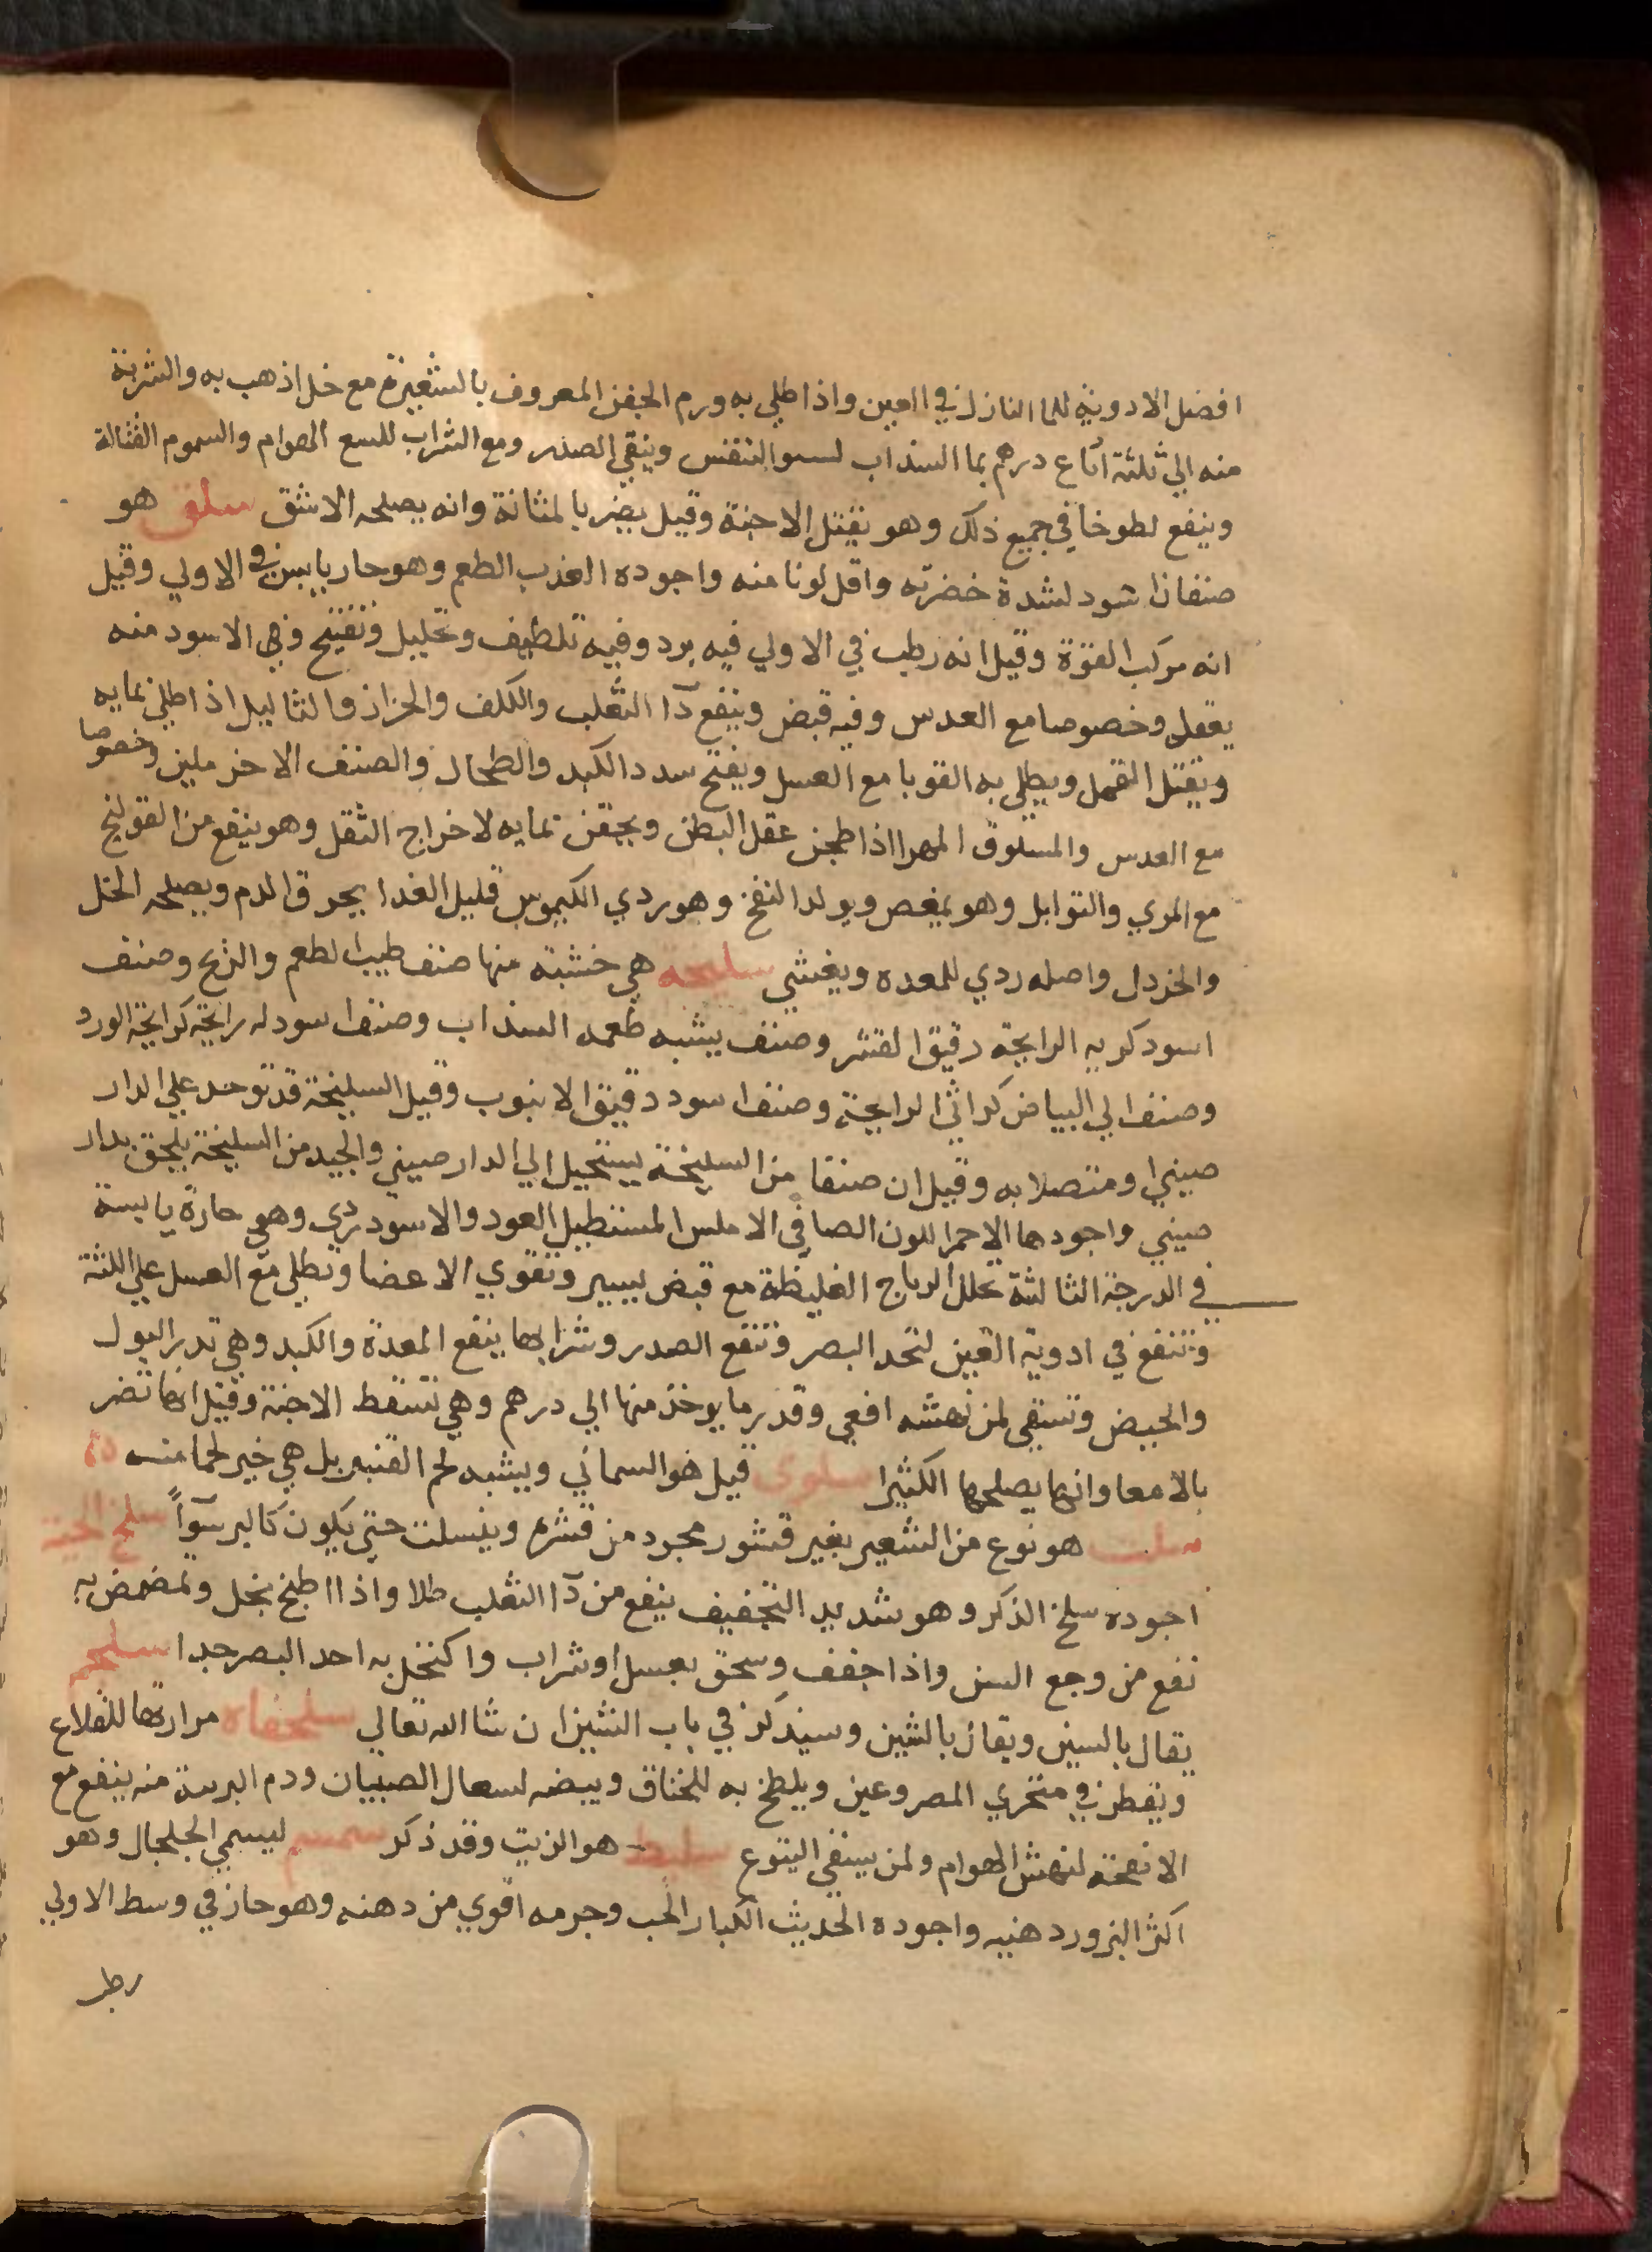 افضل الادوية للما النازل في العين واذا طلي به ورم الجفن المعروف بالشعيرة مع خل اذهب به والشربة
منه الي ثلثة ارباع درهم بما السنداب لسوا التنفس وينقي الصدر ومع الشراب للسع الهوام والسموم القتالة
وينفع لطوخا في جميع ذلك وهو يقتل الاجنة وقيل يضر بالمثانة وانه يصلحه الاشق سلق هو
صنفان اسود لشدة خضرته واقل لونا منه واجوده العذب الطعم وهو حار يابس في الاولي وقيل
انه مركب القوة وقيل انه رطب في الاولي فيه برد وفيه تلطيف وتحليل وتفتيح وفي الاسود منه
يعقل وخصوصا مع العدس وفيه قبض وينفع دآ الثعلب والكلف والحزاز والثاليل اذا طلي بمايه
ويقتل القمل ويطلي به القوبا مع العسل ويفتح سدد الكبد والطحال والصنف الاخر ملين وخصوصا
مع العدس والمسلوق المهرا اذا طجن عقل البطن ويحقن بمايه لاخراج الثقل وهو ينفع من القولنج
مع المري والتوابل وهو يمغص ويولد النفخ وهو ردي الكيموس قليل الغدا يحرق الدم ويصلحه الخل
والخردل واصله ردي للمعده ويغثي سليخه هي خشبة منها صنف طيب الطعم والريح وصنف
اسود كريه الرايحة رقيق القشر وصنف يشبه طعمه السنداب وصنف اسود له رايحة كرايحة الورد
وصنف الي البياض كراثي الرايحة وصنف اسود دقيق الانبوب وقيل السليخة قد توخد علي الدار
صيني او متصلا به وقيل ان صنفا من السليخة يستحيل الي الدار صيني والجيد من السليخة يلحق بدار
صيني واجودها الاحمر اللون الصافي الاملس المستطيل العود والاسود ردي وهي حارة يابسة
في الدرجة الثالثة تحلل الرياح الغليظة مع قبض يسير وتقوي الاعضا وتطلي مع العسل علي اللثة
وتنفع في ادوية العين لتحد البصر وتنفع الصدر وشرابها ينفع المعدة والكبد وهي تدر البول
والحيض وتسقي لمن نهشه افعي وقدر ما يوخذ منها الي درهم وهي تسقط الاجنة وقيل انها تضر
بالامعا وانها يصلحها الكثيرا سلوي قيل هو السماني ويشبه لحم القنبر بل هي خير لحما منه
سلت هو نوع من الشعير بغير قشور مجرد من قشره وينسلت حتي يكون كالبر سوآً سلخ الحية
اجوده سلخ الذكر وهو شديد التجفيف ينفع من دآ الثعلب طلا واذا اطبخ بخل وتمضمض به
نفع من وجع السن واذا جفف وسحق بعسل او شراب واكتحل به احد البصر جدا سلجم
يقال بالسين ويقال بالشين وسيذكر في باب الشين ان شا الله تعالي سلحفاه مرارتها للقلاع
ويقطر في منخري المصروعين ويلطخ به للخناق وبيضه لسعال الصبيان ودم البرية منه ينفع مع
الانفحة لنهش الهوام ولمن يسقي اليتوع سليط هو الزيت وقد ذكر سمسم ليسمي الجلجال وهو
اكثر البزور دهنيه واجوده الحديث الكبار الحب وجرمه اقوي من دهنه وهو حار في وسط الاولي
رطب